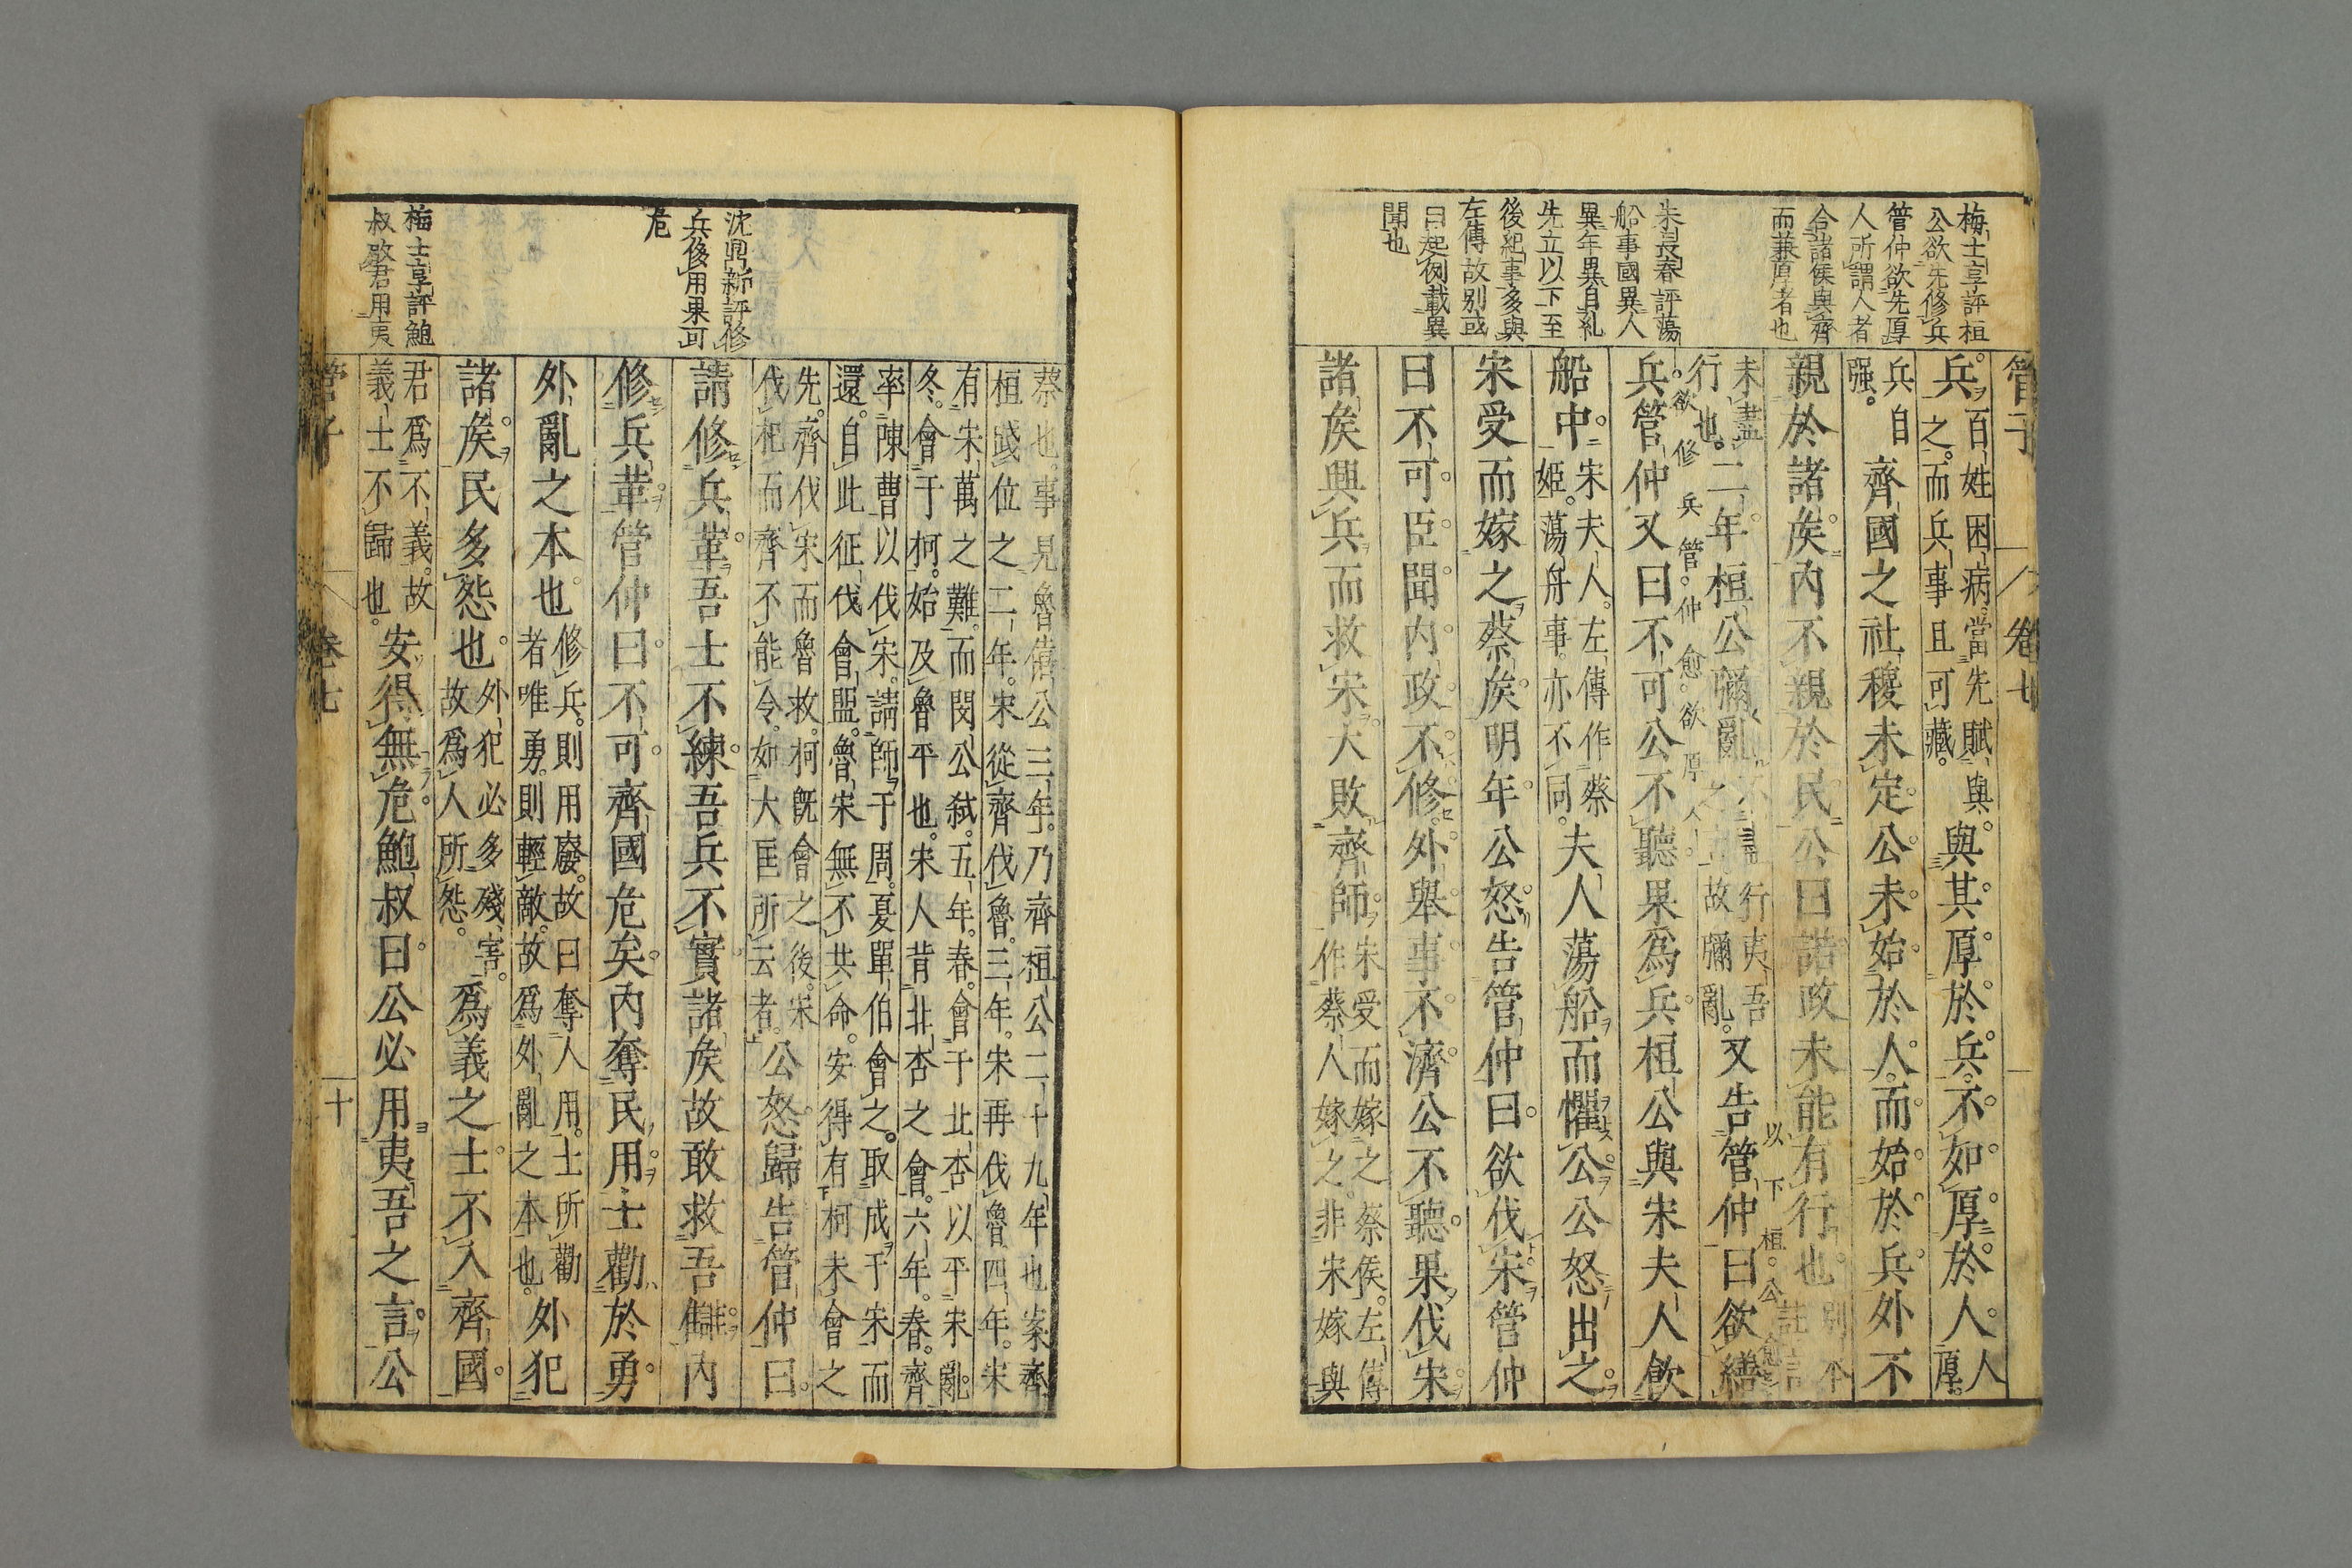 梅士享評桓
公欲先修兵
管仲欲先厚
人所謂人者
合諸侯與齊
而兼厚者也
朱長春評蕩
船事國異人
異年異自糺
先立以下至
後紀事多與
左傳故别或
曰起例載異
聞也
管子
卷七
兵百姓困病當先賦與
之而兵事且可藏與其厚於兵不如厚於人人厚
兵自强齊國之社稷未定公未始於人而始於兵外不
親於諸矦內不親於民公曰諾政未能有行也
未盡行也二年桓公彌亂行夷吾之言故彌亂又告管仲曰欲繕
欲修兵管仲愈欲厚人
以下桓公
兵管仲又曰不可公不聽果為兵桓公與宋夫人飲
船中宋夫人左傳作蔡姬蕩舟事亦不同夫人蕩船而懼公公怒出之
宋受而嫁之蔡矦明年公怒告管仲曰欲伐宋管仲
曰不可臣聞內政不修外舉事不濟公不聽果伐宋
諸矦興兵而救宋大敗齊師宋受而嫁之蔡侯左傳作蔡人嫁之非宋嫁與
沈鼎新評修
兵後用果可
危
梅士享評鮑
叔啟君用夷
蔡也事見魯僖公三年乃齊桓公二十九年也案齊
桓踐位之二年宋從齊伐魯三年宋再伐魯四年宋
有宋萬之難而閔公弒五年春會于北杏以平宋亂
冬會于柯始及魯平也宋人背北杏之會六年春齊
率陳曹以伐宋請師于周夏單伯會之取成于宋而
還自此征伐會盟魯宋無不共命安得有柯未會之
先齊伐宋而魯救柯旣會之後宋
伐杞而齊不能令如大匡所云者公怒歸告管仲曰
請修兵革吾士不練吾兵不實諸矦故敢救吾讎內
修兵革管仲曰不可齊國危矣內奪民用士勸於勇
外亂之本也修兵則用廢故曰奪人用士所勸
者唯勇則輕敵故為外亂之本也外犯
諸矦民多怨也外犯必多殘害故為人所怨為義之士不入齊國
君為不義故義士不歸也安得無危鮑叔曰公必用夷吾之言公
管子
卷七
十